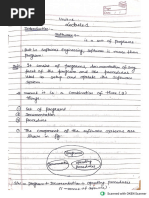 Unit-1
Lecture-1
Introduction:-
Software:-
is a set of Programs
But in Software Engineering, Software is more than
program.
It consist of programs, documentation of any
part of the program and the procedures
used to setup and operate the software
system.
means it is a combination of three (3)
things
1 Set of programs
2 Documentation
3 procedures
The component of the software systems are
shown in fig.
Programs
Documentation
Operating
Procedures
= Programs + Documentation + Operating procedures
Scanned with CamScanner